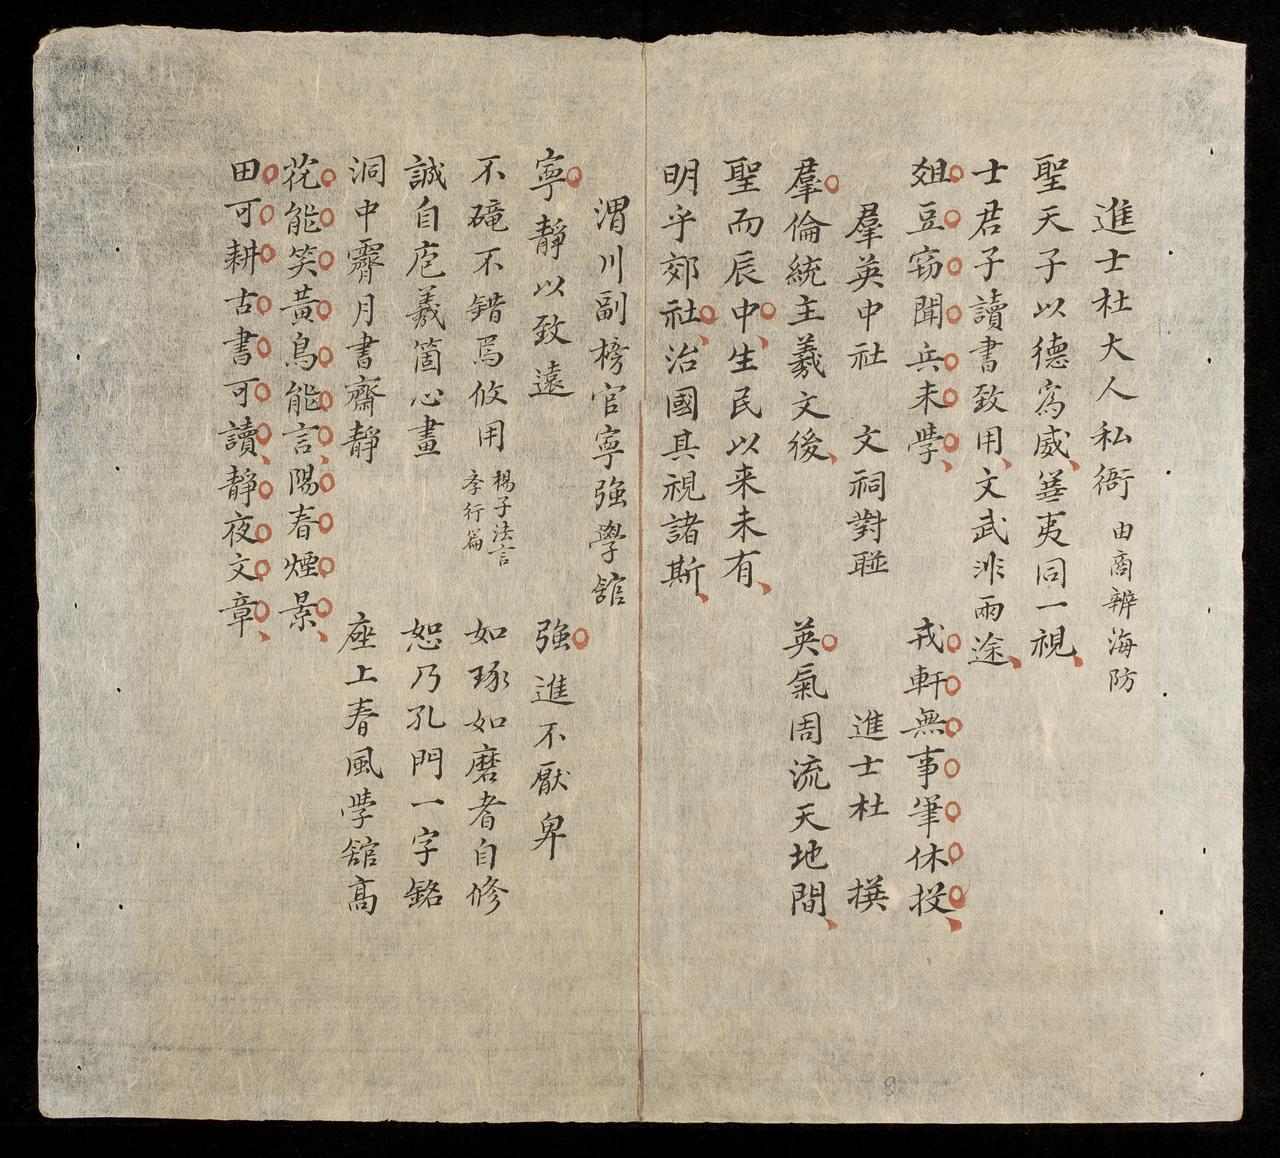 進士杜大人私衙 由商辨海防
聖天子以德爲威華夷同一視
士君子讀書致用文武非兩途
俎豆窃聞兵未學 戎軒無事筆休投
羣英中社 文祠對聯 進士杜 撰
羣倫統主羲文後 英氣周流天地間
聖而辰中生民以来未有
明乎郊社治國其視諸斯
渭川副榜官寧強學舘
寧靜以致遠 強進不厭卑
不礲不錯焉攸用 楊子法言孝行篇 如琢如磨者自修
誠自庖羲箇心畫 恕乃孔門一字銘
洞中霽月書齋靜 座上春風學舘高
花能笑黃鳥能言陽春煙景
田可耕古書可讀靜夜文章
9